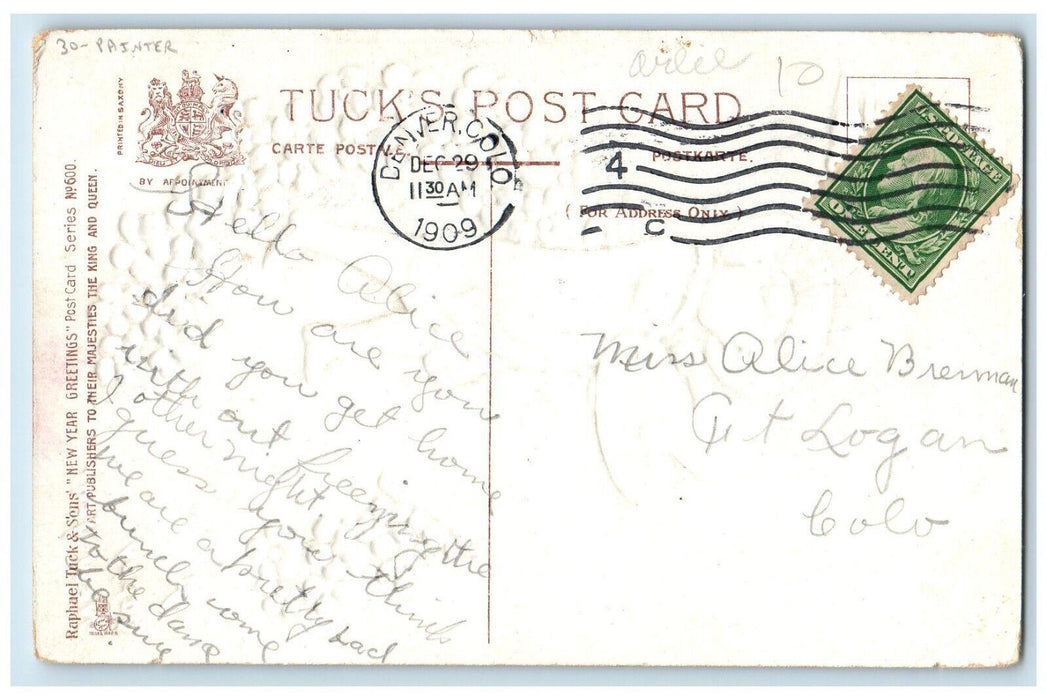 30- PAINTER
arlee
10
PRINTED IN SAXONY
TUCK'S POST CARD
CARTE POSTALE.
POSTKARTE.
BY APPOINTMENT
(FOR ADDRESS ONLY.)
DENVER, COLO
DEC 29
11 30 AM
1909
4
C
U.S. POSTAGE
ONE CENT
Raphael Tuck & Sons' "NEW YEAR GREETINGS" Post Card Series No 600.
ART PUBLISHERS TO THEIR MAJESTIES THE KING AND QUEEN.
Hello Alice
How are you
did you get home
with out freezing the
other night.
I guess you think
we are a pretty bad
bunch come
to the dance
to be sure
Miss Alice Brennan
Ft Logan
Colo